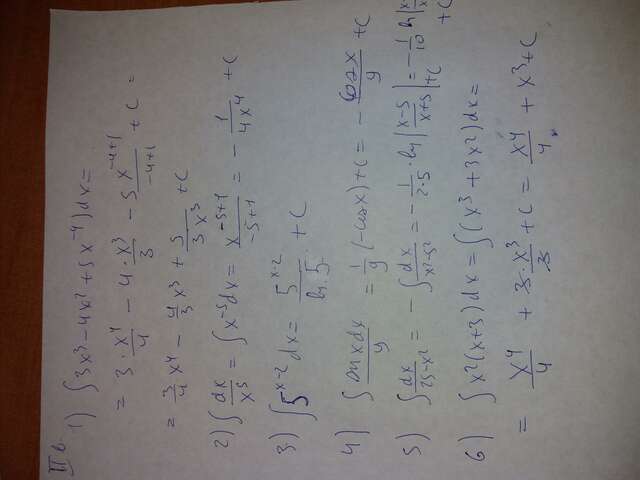 II в.
1) ∫ 3x³ - 4x² + 5x⁻⁴) dx =
= 3 · x⁴/4 - 4 · x³/3 - 5x⁻⁴⁺¹/-4+1 + C =
= 3/4 x⁴ - 4/3 x³ + 5/3x³ + C
2) ∫ dx/x⁵ = ∫ x⁻⁵ dx = x⁻⁵⁺¹/-5+1 = - 1/4x⁴ + C
3) ∫ 5ˣ⁻² dx = 5ˣ⁻²/ln 5 + C
4) ∫ sin x dx/9 = 1/9 (-cos x) + C = - cos x/9 + C
5) ∫ dx/25-x² = - ∫ dx/x²-5² = - 1/2·5 · ln |x-5/x+5| = - 1/10 ln
+ C + C
6) ∫ x² (x+3) dx = ∫ (x³ + 3x²) dx =
= x⁴/4 + 3·x³/3 + C = x⁴/4 + x³ + C